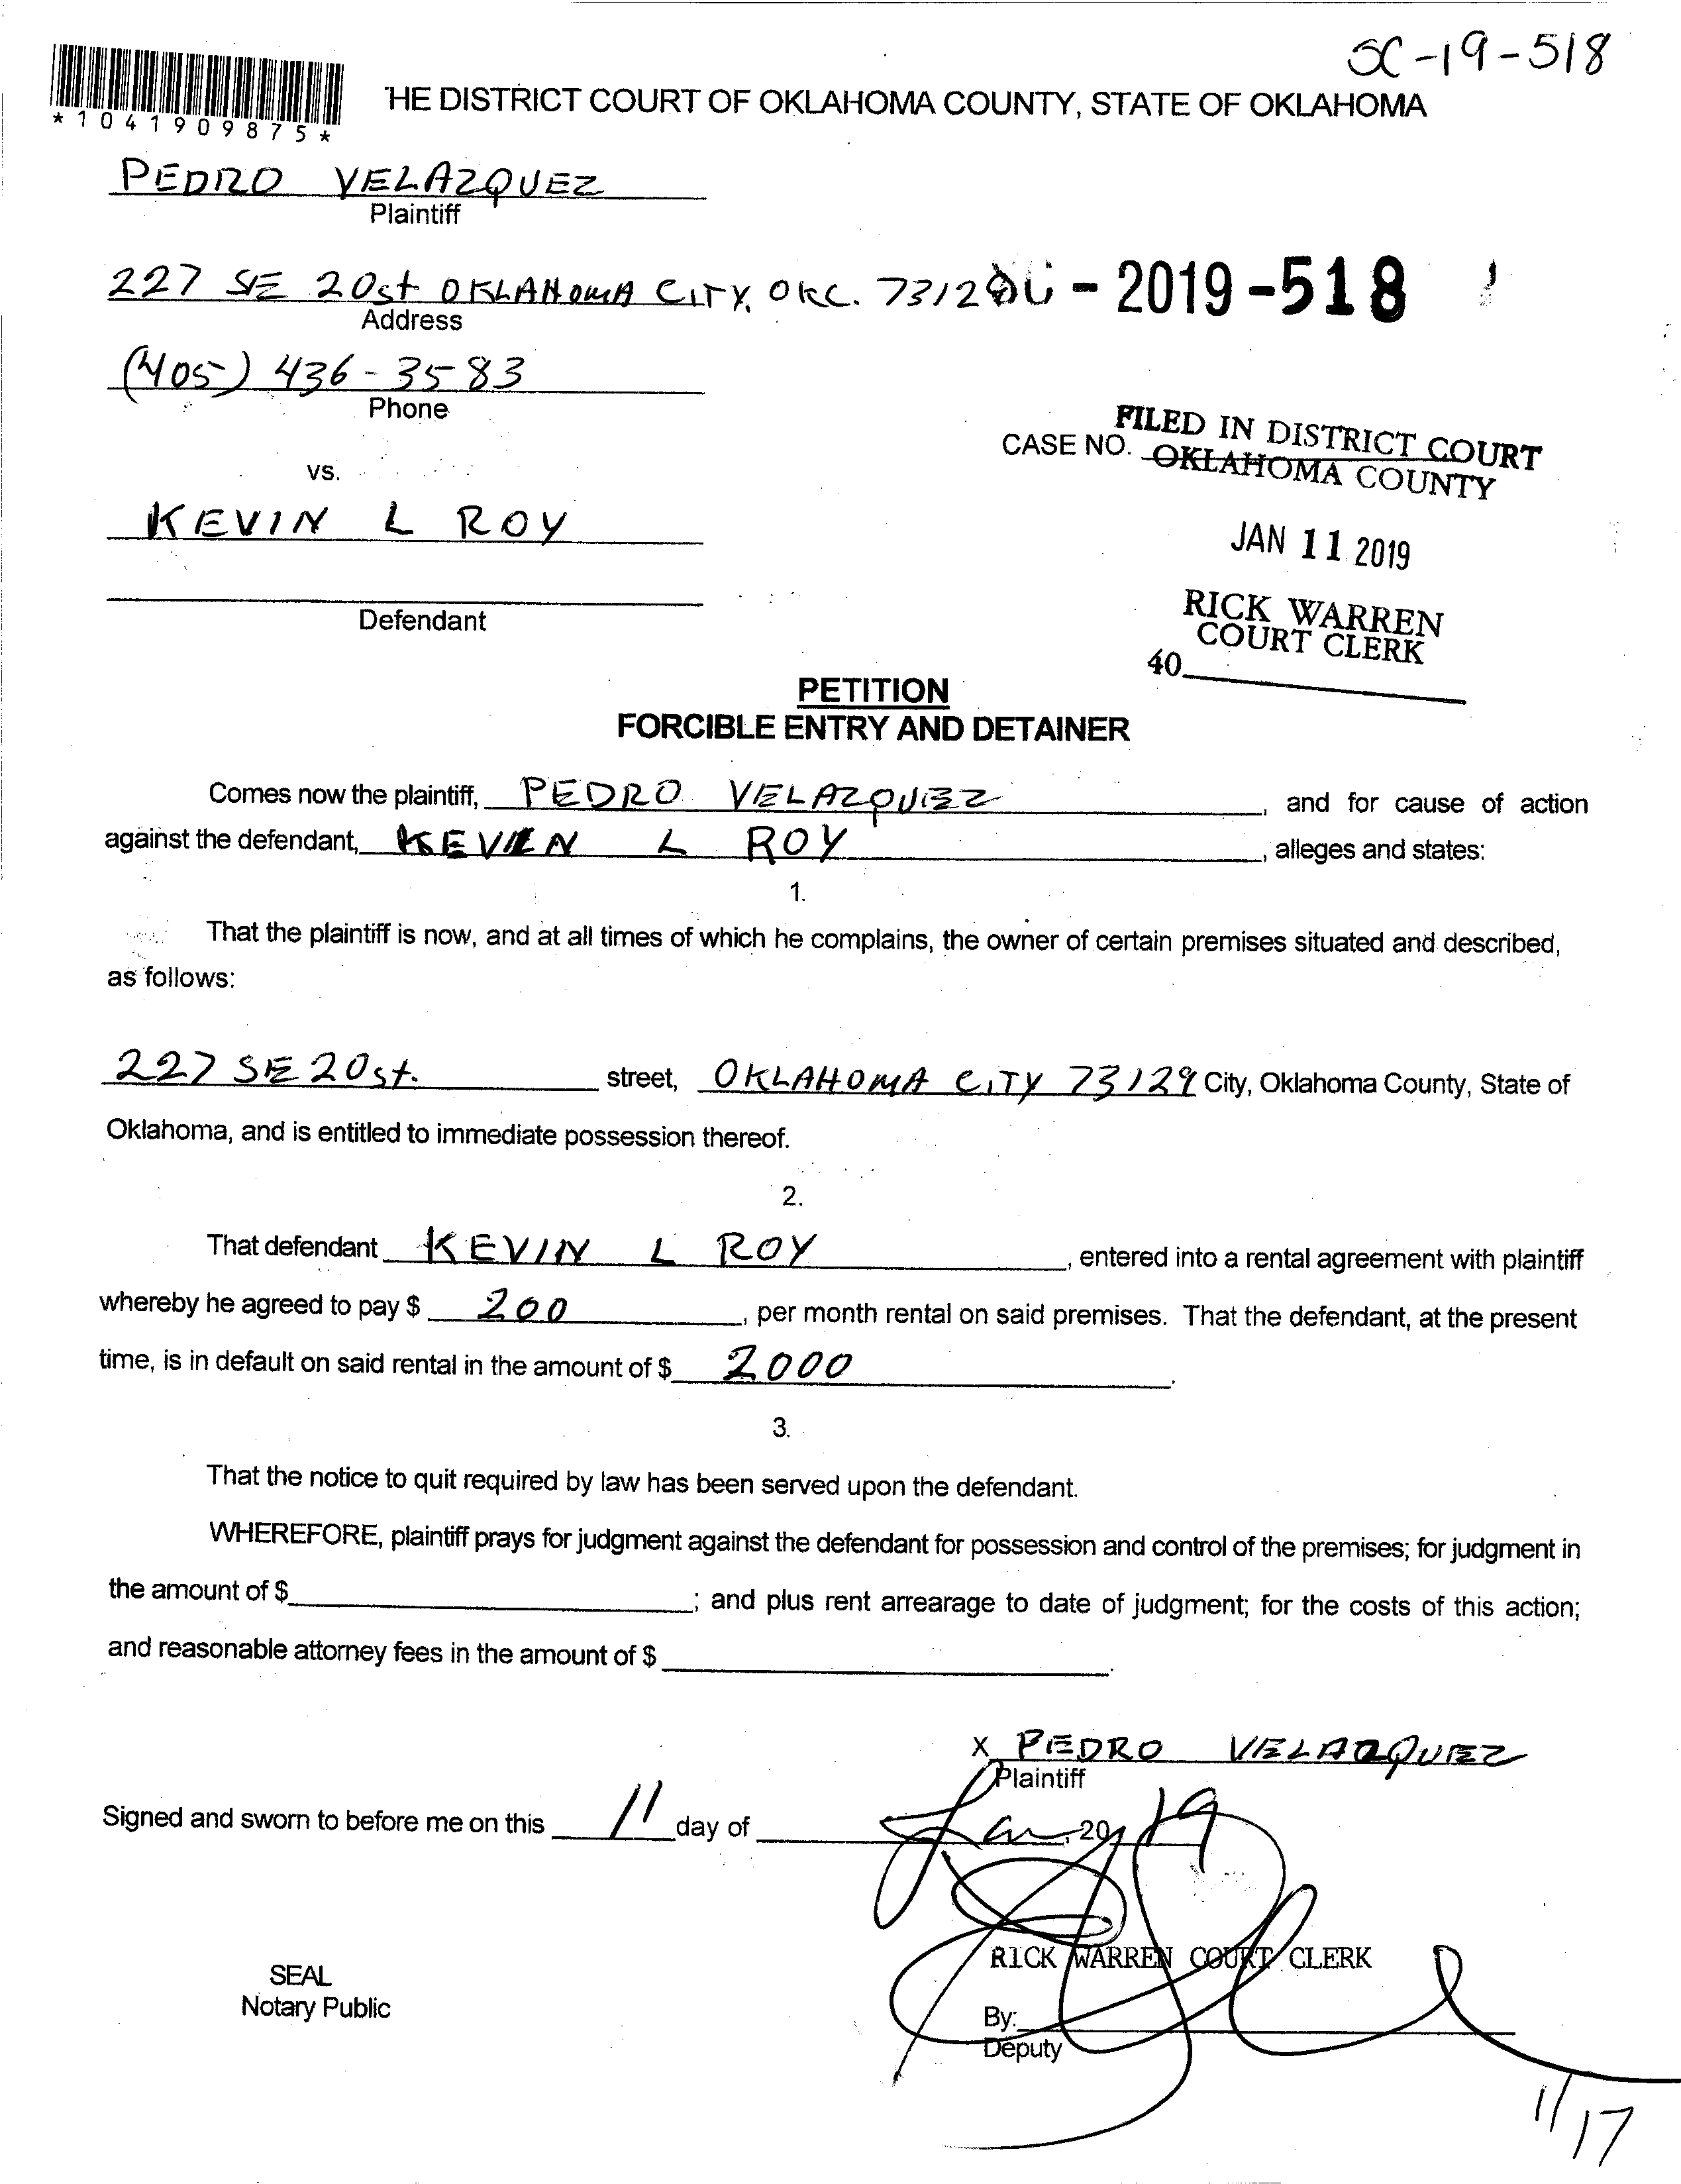 SC-19-518
*1041909875*
HE DISTRICT COURT OF OKLAHOMA COUNTY, STATE OF OKLAHOMA
PEDRO VELAZQUEZ
Plaintiff
227 SE 20st OKLAHOMA CITY, OKC. 7312 - 2019 - 518
Address
(405) 436-3583
Phone
FILED IN DISTRICT COURT
CASE NO. OKLAHOMA COUNTY
vs.
KEVIN L ROY
JAN 11 2019
Defendant
RICK WARREN
COURT CLERK
40
PETITION
FORCIBLE ENTRY AND DETAINER
Comes now the plaintiff, PEDRO VELAZQUEZ, and for cause of action
against the defendant, KEVIN L ROY, alleges and states:
1.
That the plaintiff is now, and at all times of which he complains, the owner of certain premises situated and described,
as follows:
227 SE 20st. street, OKLAHOMA CITY 73129 City, Oklahoma County, State of
Oklahoma, and is entitled to immediate possession thereof.
2.
That defendant KEVIN L ROY, entered into a rental agreement with plaintiff
whereby he agreed to pay $ 200, per month rental on said premises. That the defendant, at the present
time, is in default on said rental in the amount of $ 2000.
3.
That the notice to quit required by law has been served upon the defendant.
WHEREFORE, plaintiff prays for judgment against the defendant for possession and control of the premises; for judgment in
the amount of $; and plus rent arrearage to date of judgment; for the costs of this action;
and reasonable attorney fees in the amount of $.
X PEDRO VELAZQUEZ
Plaintiff
Signed and sworn to before me on this 11 day of Jan, 20 19
RICK WARREN COURT CLERK
SEAL
Notary Public
By:
Deputy
1/17